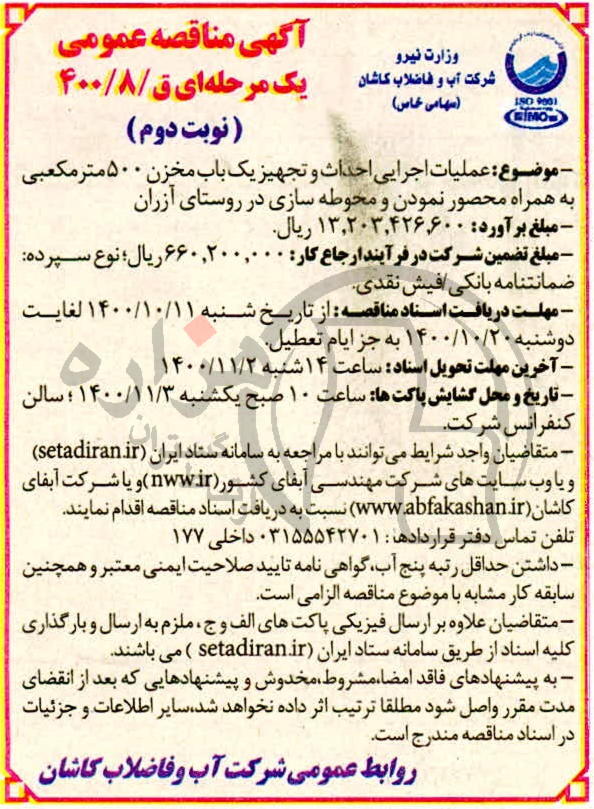 آگهی مناقصه عمومی
یک مرحله‌ای ق/۴۰۰/۸
(نوبت دوم)
وزارت نیرو
شرکت آب و فاضلاب کاشان
(سهامی خاص)
ISO 9001
– موضوع: عملیات اجرایی احداث و تجهیز یک باب مخزن ۵۰۰ مترمکعبی
به همراه محصور نمودن و محوطه سازی در روستای آزران
– مبلغ برآورد: ۱۳,۲۰۳,۴۲۶,۶۰۰ ریال.
– مبلغ تضمین شرکت در فرآیند ارجاع کار: ۶۶۰,۲۰۰,۰۰۰ ریال؛ نوع سپرده:
ضمانتنامه بانکی/فیش نقدی.
– مهلت دریافت اسناد مناقصه: از تاریخ شنبه ۱۴۰۰/۱۰/۱۱ لغایت
دوشنبه ۱۴۰۰/۱۰/۲۰ به جز ایام تعطیل.
– آخرین مهلت تحویل اسناد: ساعت ۱۴ شنبه ۱۴۰۰/۱۱/۲
– تاریخ و محل گشایش پاکت ها: ساعت ۱۰ صبح یکشنبه ۱۴۰۰/۱۱/۳؛ سالن
کنفرانس شرکت.
– متقاضیان واجد شرایط می توانند با مراجعه به سامانه ستاد ایران (setadiran.ir)
و یا وب سایت های شرکت مهندسی آبفای کشور(nww.ir)و یا شرکت آبفای
کاشان(www.abfakashan.ir) نسبت به دریافت اسناد مناقصه اقدام نمایند.
تلفن تماس دفتر قراردادها: ۰۳۱۵۵۵۴۲۷۰۱ داخلی ۱۷۷
– داشتن حداقل رتبه پنج آب، گواهی نامه تایید صلاحیت ایمنی معتبر و همچنین
سابقه کار مشابه با موضوع مناقصه الزامی است.
– متقاضیان علاوه بر ارسال فیزیکی پاکت های الف و ج، ملزم به ارسال و بارگذاری
کلیه اسناد از طریق سامانه ستاد ایران (setadiran.ir ) می باشند.
– به پیشنهادهای فاقد امضا،مشروط،مخدوش و پیشنهادهایی که بعد از انقضای
مدت مقرر واصل شود مطلقا ترتیب اثر داده نخواهد شد،سایر اطلاعات و جزئیات
در اسناد مناقصه مندرج است.
روابط عمومی شرکت آب و فاضلاب کاشان
هزاره